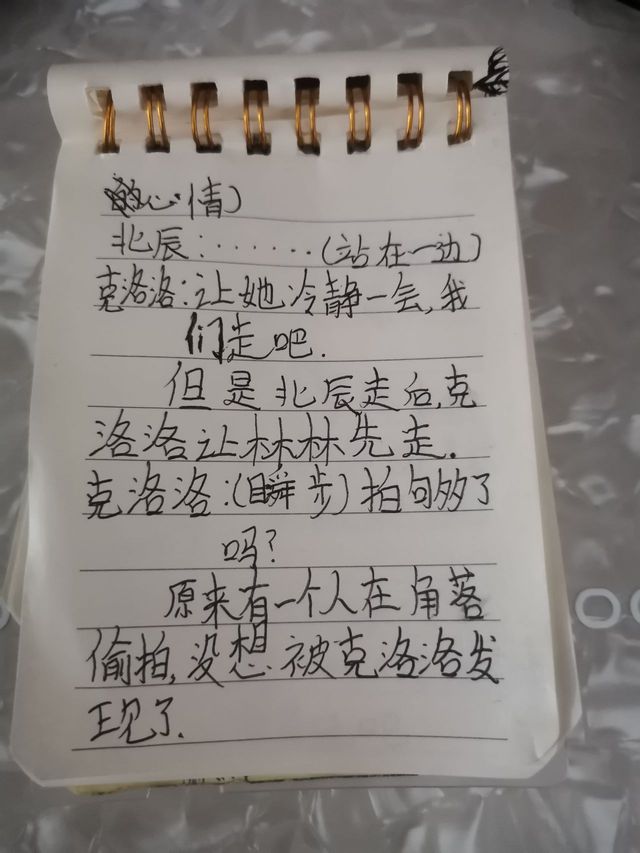 的心情)
北辰:.......(站在一边)
克洛洛:让她冷静一会,我
们走吧.
但是北辰走后,克
洛洛让林林先走.
克洛洛:(瞬步)拍句多了
吗?
原来有一个人在角落
偷拍,没想被克洛洛发
现了.